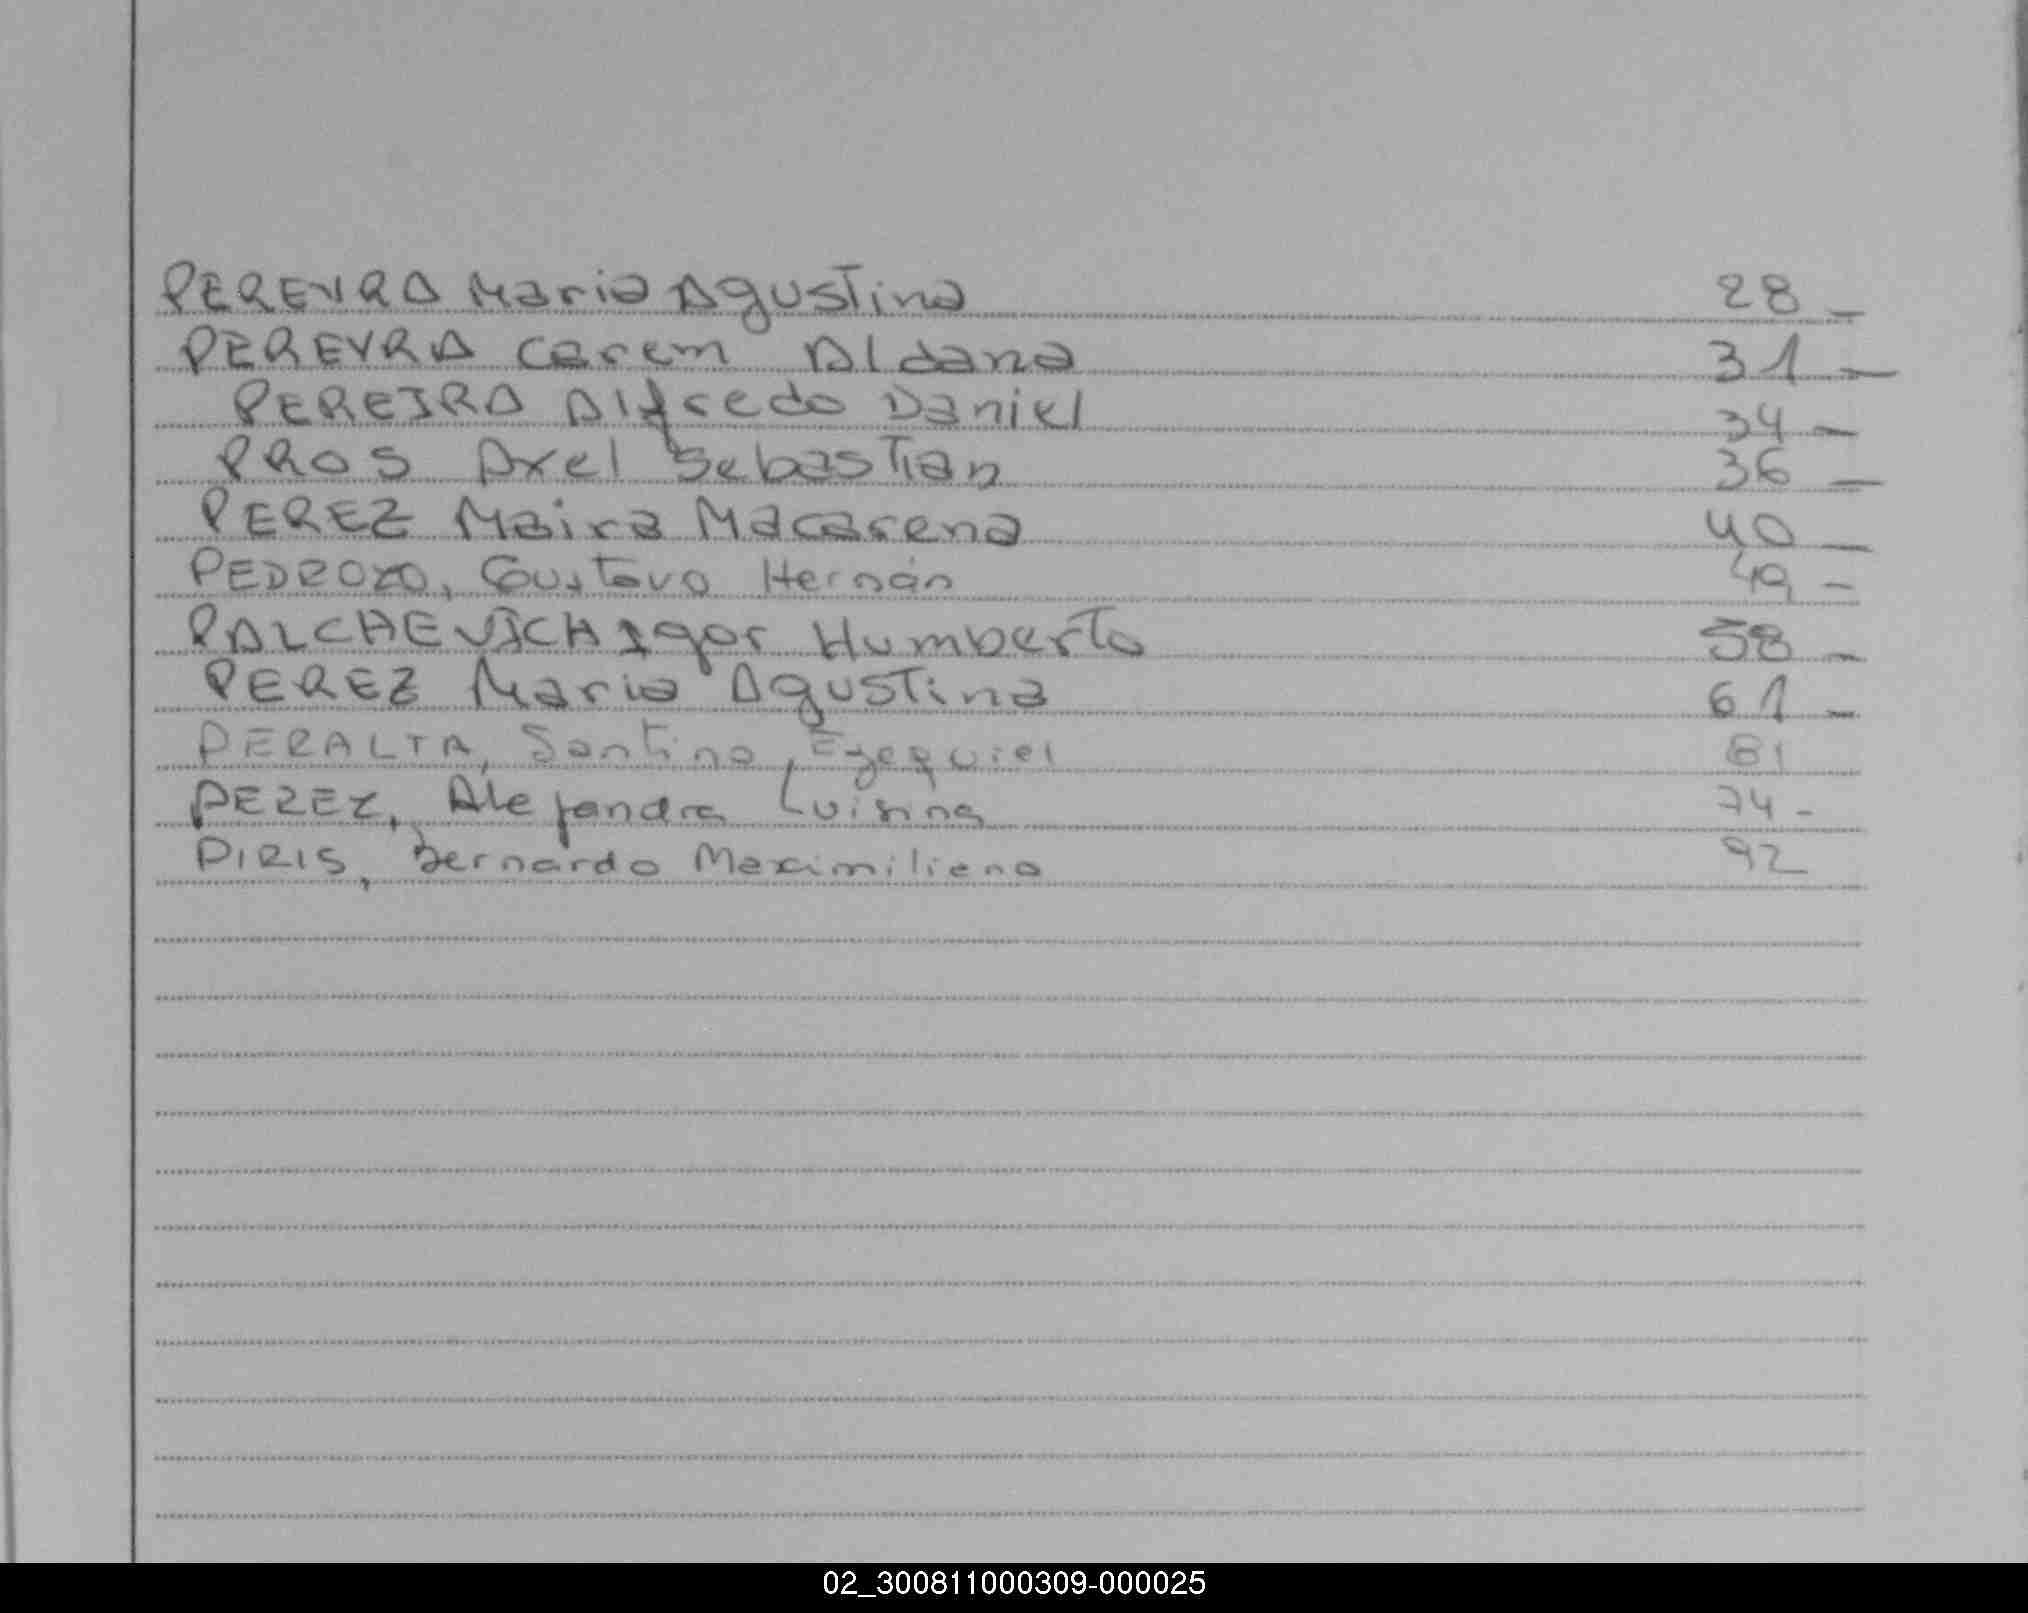 PEREYRA Maria Agustina 28 _
PEREYRA Carem Aldana 31 _
PEREIRA Alfredo Daniel 34 _
PROS Axel Sebastian 36 _
PEREZ Maira Macarena 40 _
PEDROZO, Gustavo Hernán 49 -
PALCHEVICH Igor Humberto 58 _
PEREZ Maria Agustina 61 _
PERALTA, Santino Ezequiel 81
PEREZ, Alejandra Luisina 74 -
PIRIS, Bernardo Maximiliano 92
02_300811000309-000025